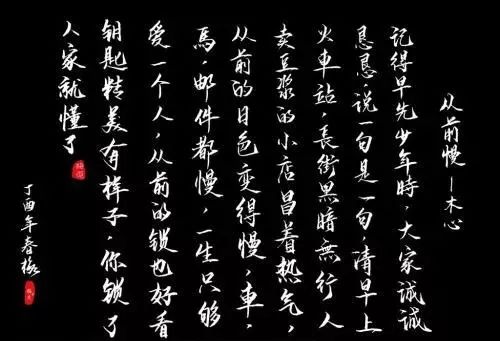 从前慢—木心
记得早先少年時，大家诚诚
恳恳，说一句是一句，清早上
火車站，長街黑暗無行人
卖豆浆的小店昌着热气，
从前的日色变得慢，車，
馬，邮件都慢，一生只够
爱一个人，从前的锁也好看
钥匙精美有样子，你锁了
人家就懂了
丁酉年春